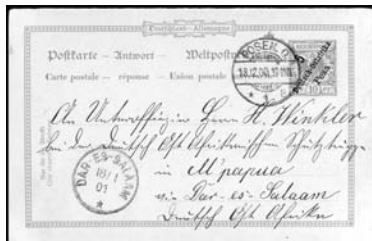 Deutschland - Allemagne
Postkarte — Antwort — Weltpostv
Carte postale — réponse — Union postale
POSEN O.
18.12.00.
* 1 a
5 Pesa
10
An Unteroffizier Herrn H. Winkler
bei der Deutsch Ost Afrikanischen Schutztruppe
in M'papua
via Dar-es-Salaam
Deutsch Ost Afrika
DAR-ES-SALAAM
18/1
01
*